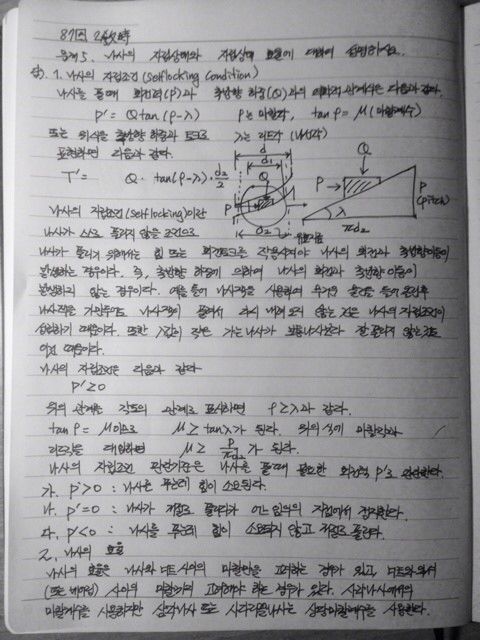 87회 2교시
문제5. 나사의 자립상태와 자립상태 효율에 대하여 설명하시오.
답). 1. 나사의 자립조건 (Selflocking condition)
나사를 풀때 회전력(P')과 축방향 하중(Q)과의 관계식은 다음과 같다.
P' = Q tan(ρ-λ)  ρ는 마찰각, tanρ = μ(마찰계수)
또는 위식을 축방향 하중과 토크로  λ는 리드각 (나선각)
표현하면 다음과 같다.
T' = Q · tan(ρ-λ) · d2/2
d
d1
Q
P
d2
Q
P
λ
πd2
P
(pitch)
나사의 자립조건 (Selflocking)이란
나사가 스스로 풀리지 않을 조건으로
나사가 풀리기 위해서는 힘 또는 회전토크를 작용시켜야 나사의 회전과 축방향이동이
발생하는 경우이다. 즉, 축방향 하중에 의하여 나사의 회전과 축방향 이동이
발생하지 않는 경우이다. 예를 들어 나사잭을 사용하여 무거운 물건을 들어 올린후
나사잭을 가만두어도 나사잭이 풀려서 다시 내려오지 않는 것은 나사의 자립조건이
성립하기 때문이다. 또한 λ값이 작은 가는나사가 보통나사보다 잘 풀리지 않는것도
이것 때문이다.
나사의 자립조건은 다음과 같다
P' ≥ 0
위의 관계를 각도의 관계로 표시하면 ρ ≥ λ과 같다.
tanρ = μ 이므로 μ ≥ tanλ가 된다. 위의 식에 마찰각과
리드각을 대입하면 μ ≥ P/πd2 가 된다.
나사의 자립조건 판단기준은 나사를 풀때에 필요한 회전력 P'로 판단한다.
가. P' > 0 : 나사를 푸는데 힘이 소요된다.
나. P' = 0 : 나사가 저절로 풀리다가 어느 임의의 지점에서 정지한다.
다. P' < 0 : 나사를 푸는데 힘이 소요되지 않고 저절로 풀린다.
2. 나사의 효율
나사의 효율은 나사와 너트 사이의 마찰만을 고려하는 경우가 있고, 너트와 와셔
(또는 베어링) 사이의 마찰까지 고려해야 하는 경우가 있다. 사각나사에서의
마찰계수를 사용하지만 삼각나사 또는 사다리꼴나사는 상당마찰계수를 사용한다.